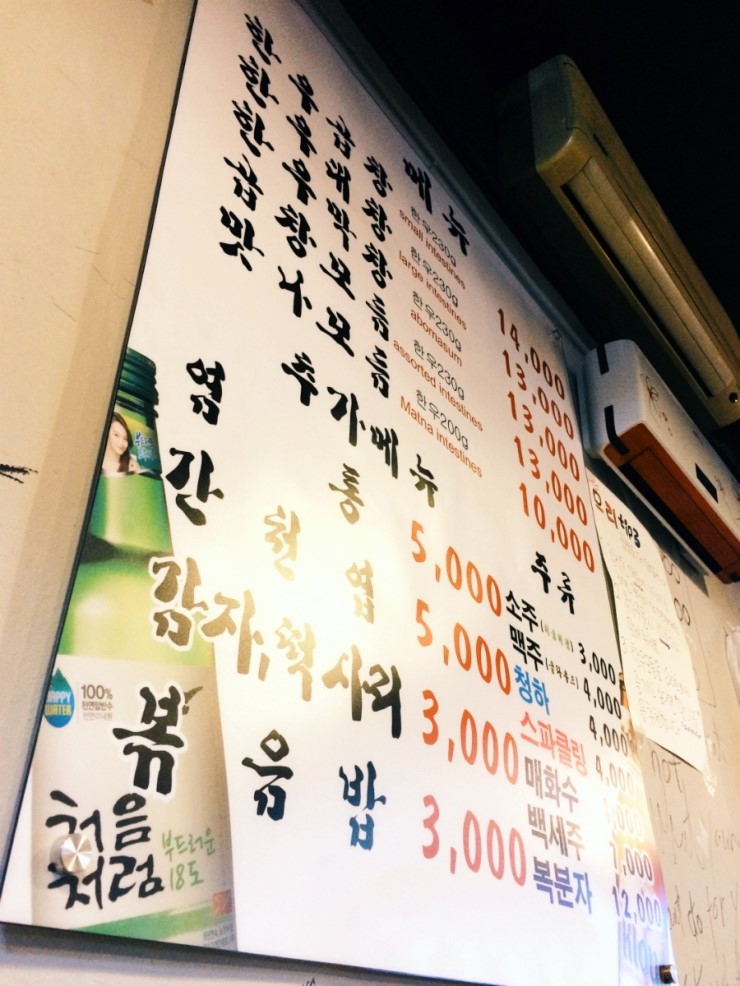 메뉴
한우곱창 한우230g small intestines 14,000
한우대창 한우230g large intestines 13,000
한우막창 한우230g abomasum 13,000
곱창모듬 한우230g assorted intestines 13,000
맛나모듬 한우200g Matna intestines 10,000
추가메뉴
염통 5,000
간 천엽 5,000
감자,떡사리 3,000
볶음밥 3,000
주류
소주 3,000
맥주 4,000
청하 4,000
스파클링 4,000
매화수
백세주
복분자 12,000
HAPPY WATER
100%
천연암반수
처음처럼
부드러운
18도